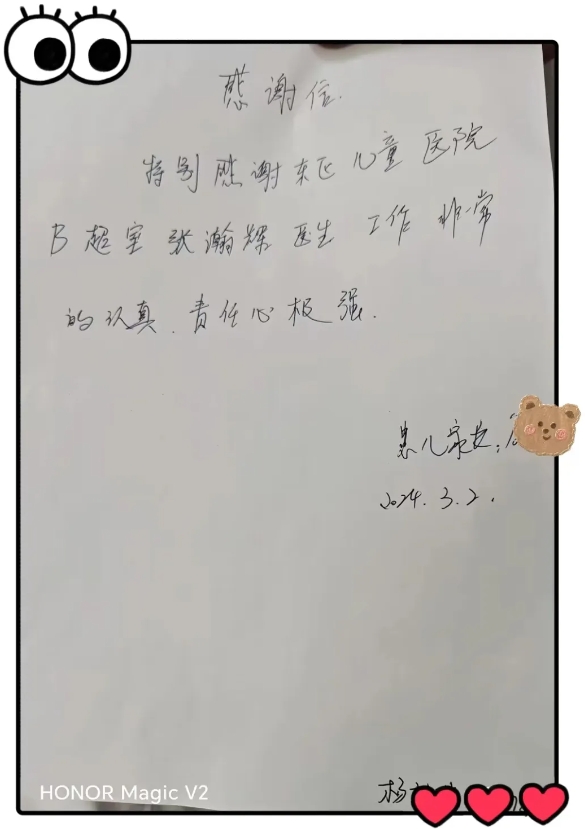 感谢信.
特别感谢东区儿童医院
B超室张瀚辉医生工作非常
的认真.责任心极强.
患儿家长:
2024.3.2.
杨
HONOR Magic V2